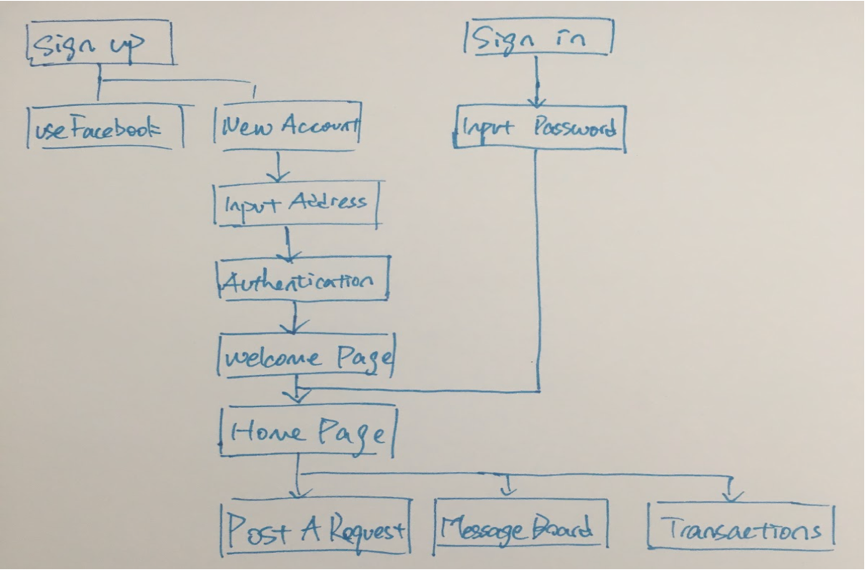 Sign up
Sign in
use Facebook
New Account
Input Password
Input Address
Authentication
Welcome Page
Home Page
Post A Request
Message Board
Transactions